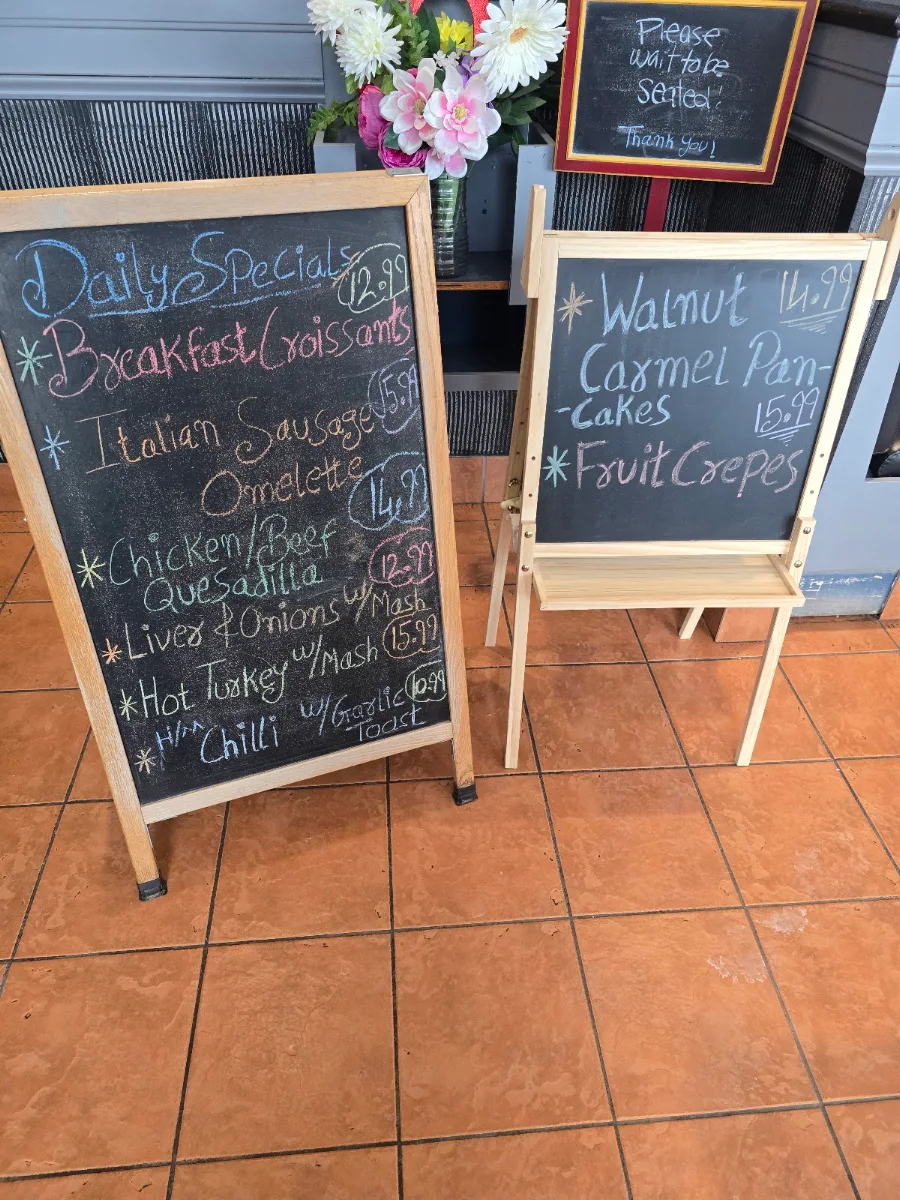 Please
wait to be
seated!
Thank you!
Daily Specials
12.99
* Breakfast Croissants
15.99
* Italian Sausage
Omelette
14.99
* Chicken/Beef
Quesadilla
12.99
* Liver & Onions w/Mash
15.99
* Hot Turkey w/Mash
10.99
* H/M Chilli w/Garlic
Toast
* Walnut 14.99
Carmel Pan-
-cakes
15.99
* Fruit Crepes